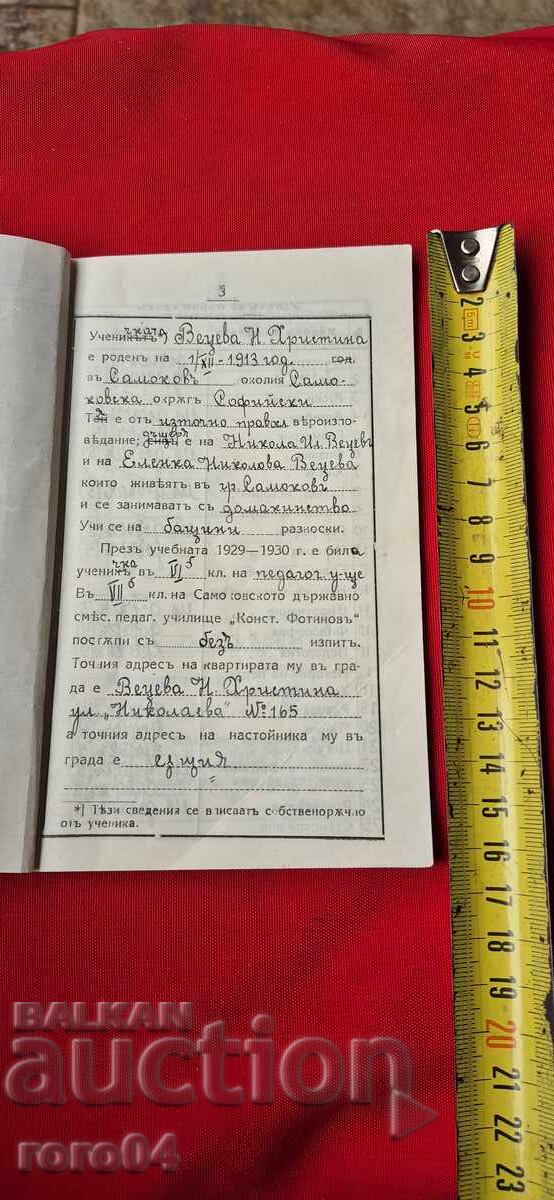 3
Ученикътъ чката) Вецева Н. Христина
е роденъ на 1/XII - 1913 год. год.
въ Самоковъ околия Само-
ковска окржгъ Софийски
Той е отъ източно правосл вѣроизпо-
вѣдание; синъ дъщеря е на Никола Ил. Вецевъ
и на Еленка Николова Вецева
които живѣятъ въ гр. Самоковъ
и се занимаватъ съ домакинство
Учи се на бащини разноски.
Презъ учебната 1929—1930 г. е била
ученичка въ VI б кл. на педагог. у-ще
Въ VII б кл. на Самоковското държавно
смѣс. педаг. училище „Конст. Фотиновъ"
постѫпи съ безъ изпитъ.
Точния адресъ на квартирата му въ гра-
да е Вецева Н. Христина
ул. „Николаева" № 165
а точния адресъ на настойника му въ
града е сѫщия
*) Тѣзи сведения се вписватъ собственорѫчно
отъ ученика.
2 3 4 5 6 7 8 9 10 11 12 13 14 15 16 17 18 19 20 21 22 23
5m
BALKAN
auction
roro04